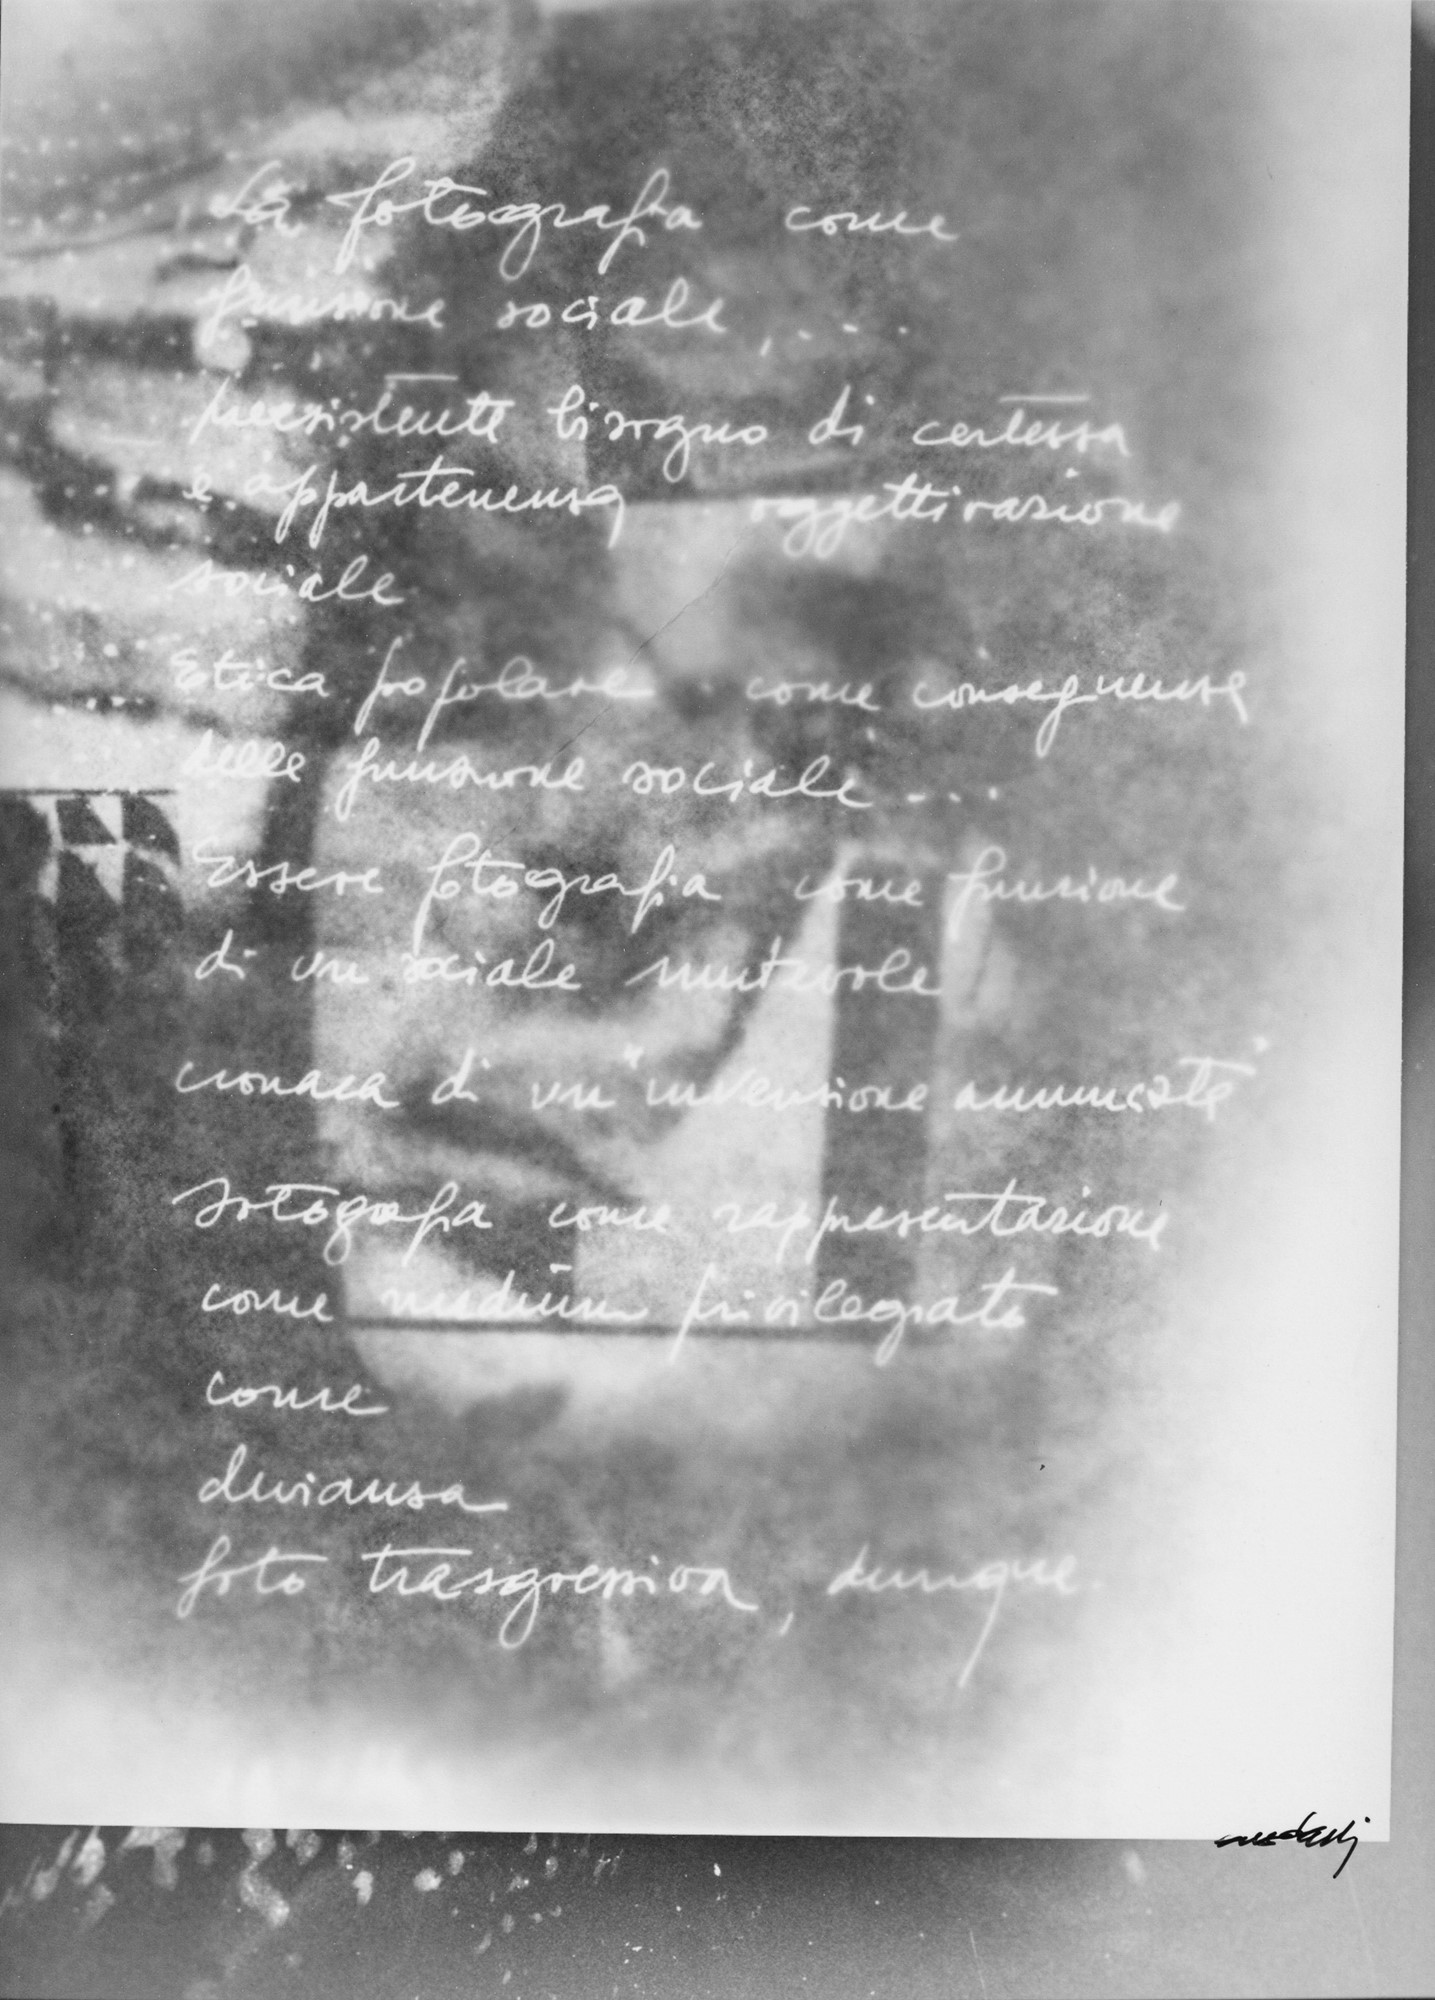 La fotografia come
funzione sociale, . . .
preesistente bisogno di certezza
e appartenenza oggettivazione
sociale
Etica popolare come conseguenza
della funzione sociale ...
Essere fotografia come funzione
di un sociale mutevole
cronaca di un "invenzione annunciata"
fotografia come rappresentazione
come medium privilegiato
come
devianza
foto trasgressiva, dunque.